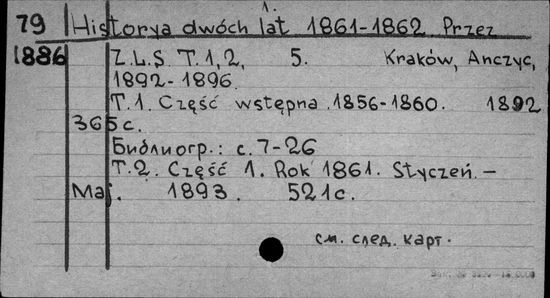 1.
79 Historya dwóch lat 1861-1862 Przez
1886 Z.L.S T.1,2, 5. Kraków, Anczyc,
1892-1896.
T.1. Część wstępna .1856-1860. 1892
365с.
Библиогр.: с.7-26
T.2. Część 1. Rok 1861. Styczeń. –
Maj. 1893. 521с.
см. след. карт.